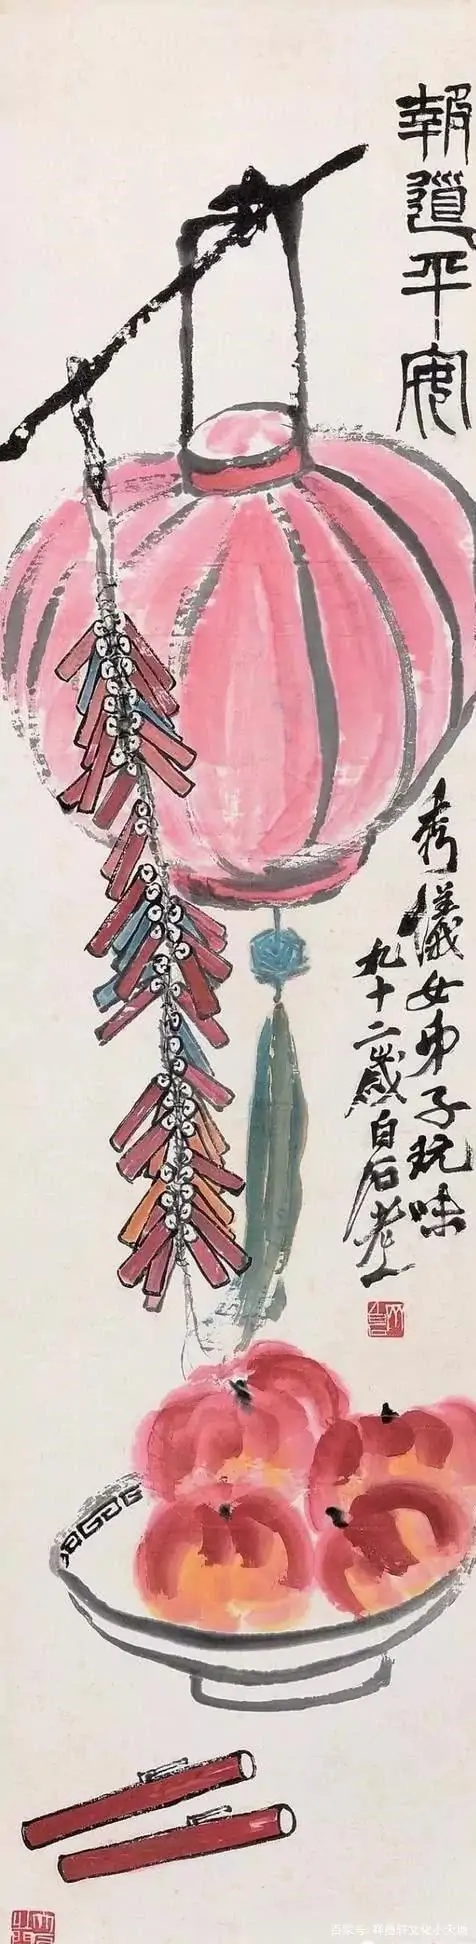 報道平安
秀儀女弟子玩味
九十二歲白石老人
百家号/祥墨轩文化小天地